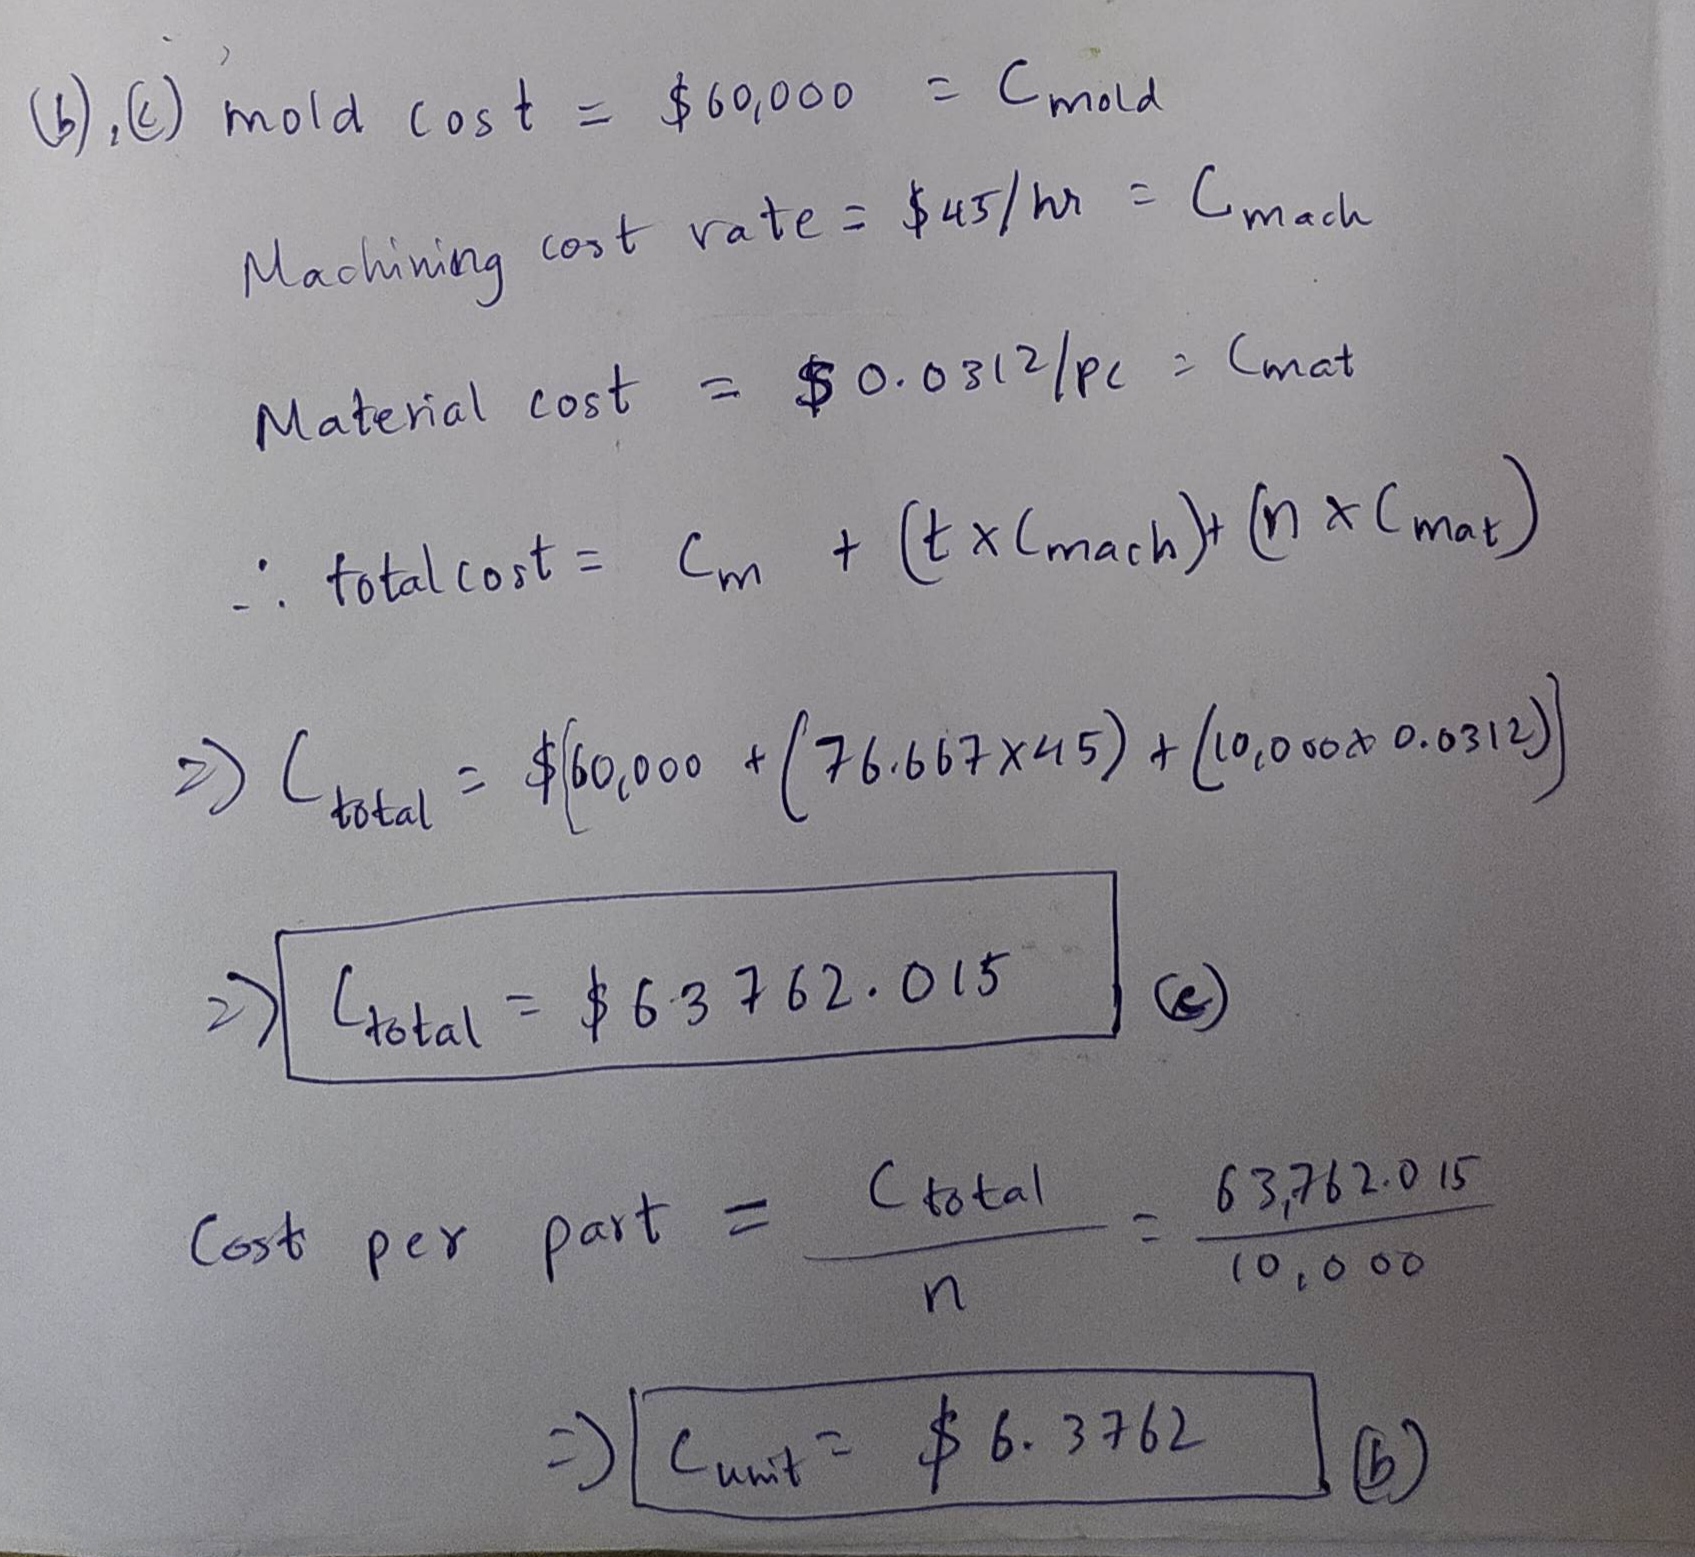 (b), (c) mold cost = $60,000 = Cmold
Machining cost rate = $45/hr = Cmach
Material cost = $0.0312/pc = Cmat
∴ total cost = Cm + (t x Cmach) + (n x Cmat)
=> Ctotal = $[60,000 + (76.667 x 45) + (10,000 x 0.0312)]
=> Ctotal = $63762.015 (c)
Cost per part = Ctotal / n = 63,762.015 / 10,000
=> Cunit = $6.3762 (b)